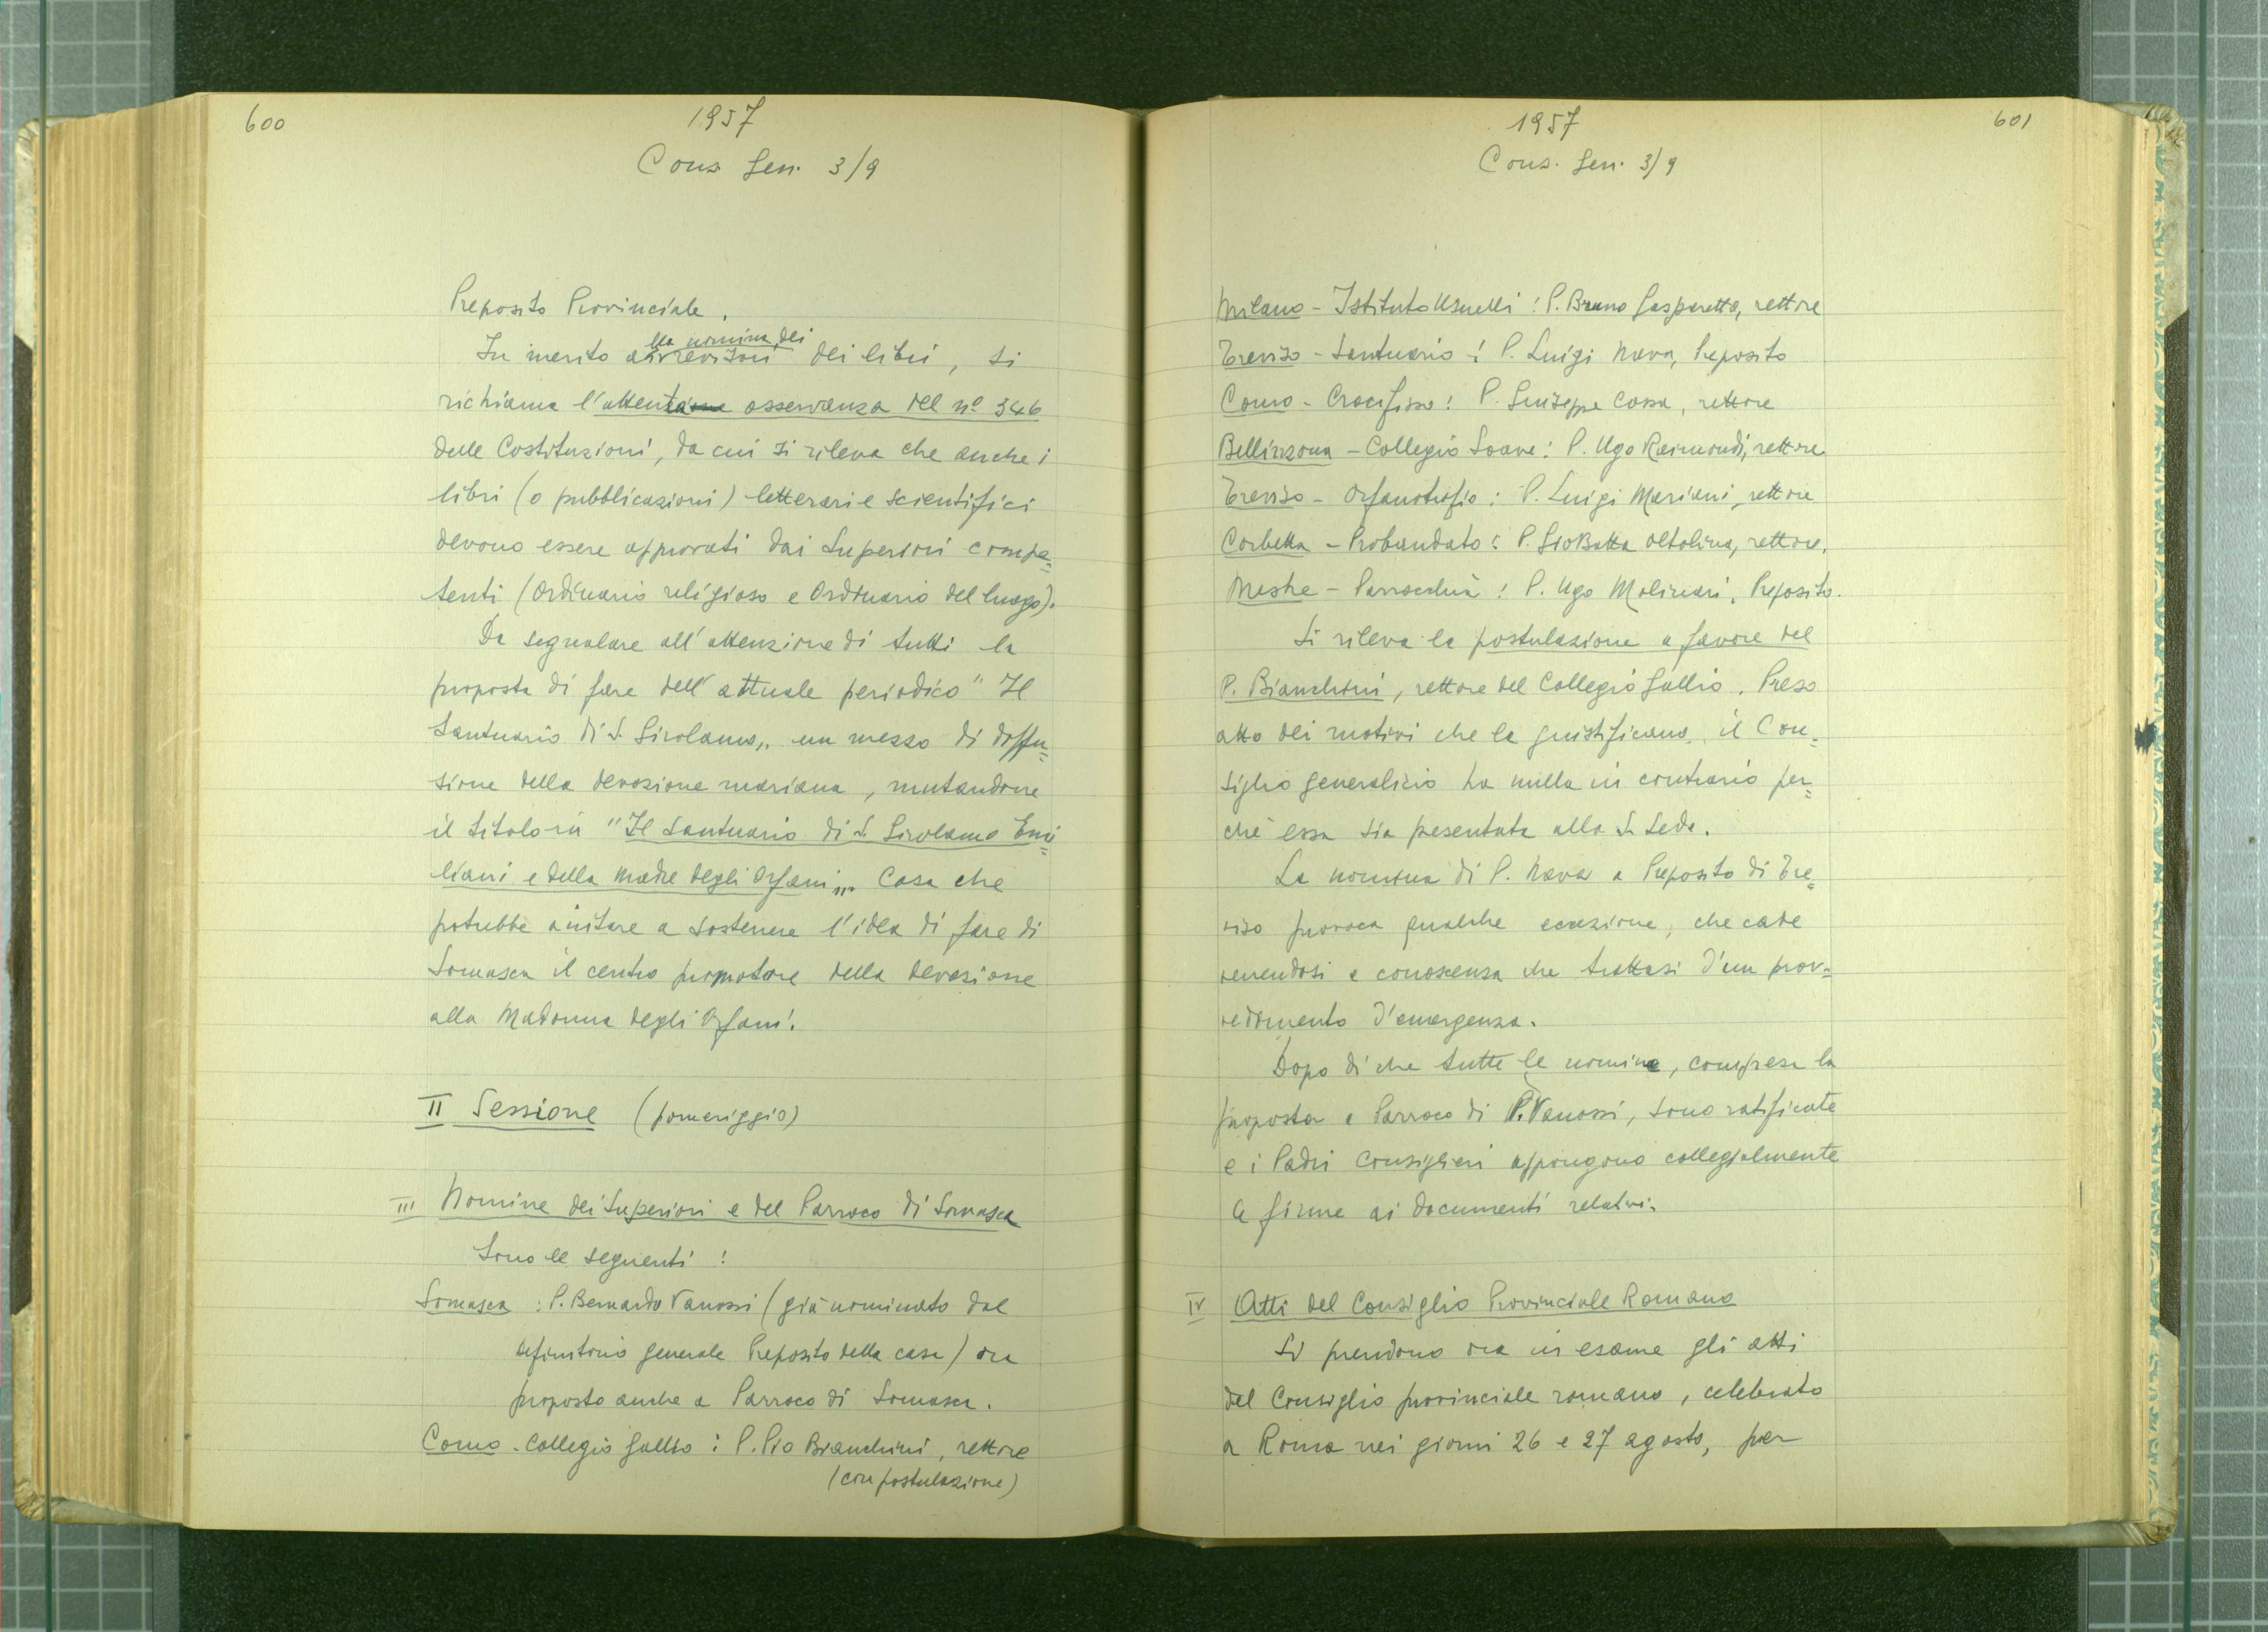 600
1957
Cons. Gen. 3/9
Preposito Provinciale.
lla nomina dei
In merito ai revisori dei libri, si
richiama l'attenta osservanza del nº 346
delle Costituzioni, da cui si rileva che anche i
libri (o pubblicazioni) letterari e scientifici
devono essere approvati dai Superiori compe=
tenti (Ordinario religioso e Ordinario del luogo).
Da segnalare all'attenzione di tutti la
proposta di fare dell'attuale periodico "Il
Santuario di S. Girolamo,, un mezzo di diffu=
sione della devozione mariana, mutandone
il titolo in "Il Santuario di S. Girolamo Emi=
liani e della Madre degli Orfani,,. Cosa che
potrebbe aiutare a sostenere l'idea di fare di
Somasca il centro promotore della devozione
alla Madonna degli Orfani.
II Sessione (pomeriggio)
III Nomine dei Superiori e del Parroco di Somasca
Sono le seguenti:
Somasca: P. Bernardo Vanossi (già nominato dal
definitorio generale Preposito della casa) ora
proposto anche a Parroco di Somasca.
Como - Collegio Gallio: P. Pio Bianchini, rettore
(con postulazione)
601
1957
Cons. Gen. 3/9
Milano - Istituto Usuelli: P. Bruno Gasparetto, rettore
Treviso - Santuario: P. Luigi Nava, Preposito
Como - Crocifisso: P. Giuseppe Cossa, rettore
Bellinzona - Collegio Soave: P. Ugo Raimondi, rettore
Treviso - Orfanotrofio: P. Luigi Mariani, rettore
Corbetta - Probandato: P. GioBatta Oltolina, rettore.
Mestre - Parrocchia: P. Ugo Molinari, Preposito.
Si rileva la postulazione a favore del
P. Bianchini, rettore del Collegio Gallio. Preso
atto dei motivi che la giustificano, il Con=
siglio generalizio ha nulla in contrario per=
chè essa sia presentata alla S. Sede.
La nomina di P. Nava a Preposito di Tre=
viso provoca qualche eccezione, che cade
venendosi a conoscenza che trattasi d'un prov=
vedimento d'emergenza.
Dopo di che tutte le nomine, compresa la
proposta a Parroco di P. Vanossi, sono ratificate
e i Padri Consiglieri appongono collegialmente
le firme ai documenti relativi.
IV Atti del Consiglio Provinciale Romano
Si prendono ora in esame gli atti
del Consiglio provinciale romano, celebrato
a Roma nei giorni 26 e 27 agosto, per